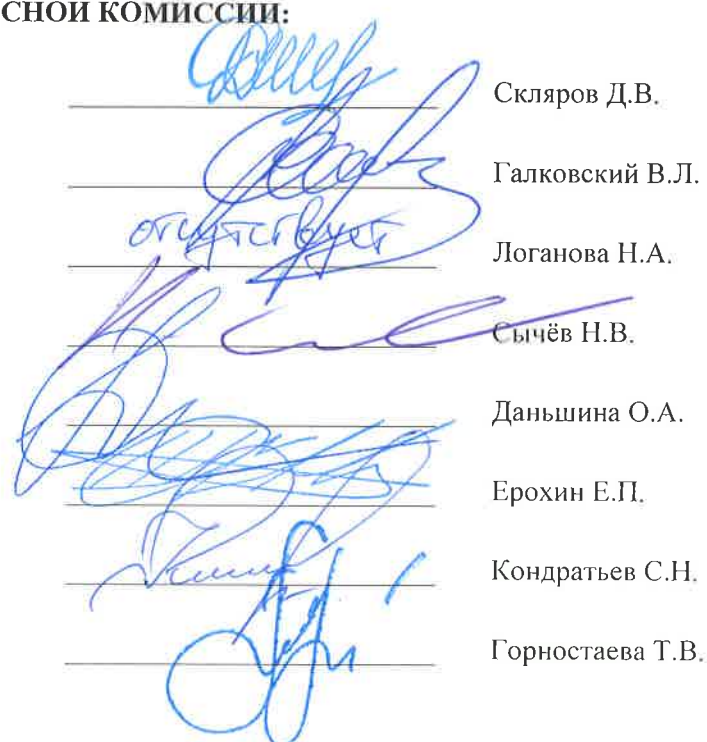 СНОЙ КОМИССИИ:
Скляров Д.В.
Галковский В.Л.
отсутствует Логанова Н.А.
Сычёв Н.В.
Даньшина О.А.
Ерохин Е.П.
Кондратьев С.Н.
Горностаева Т.В.